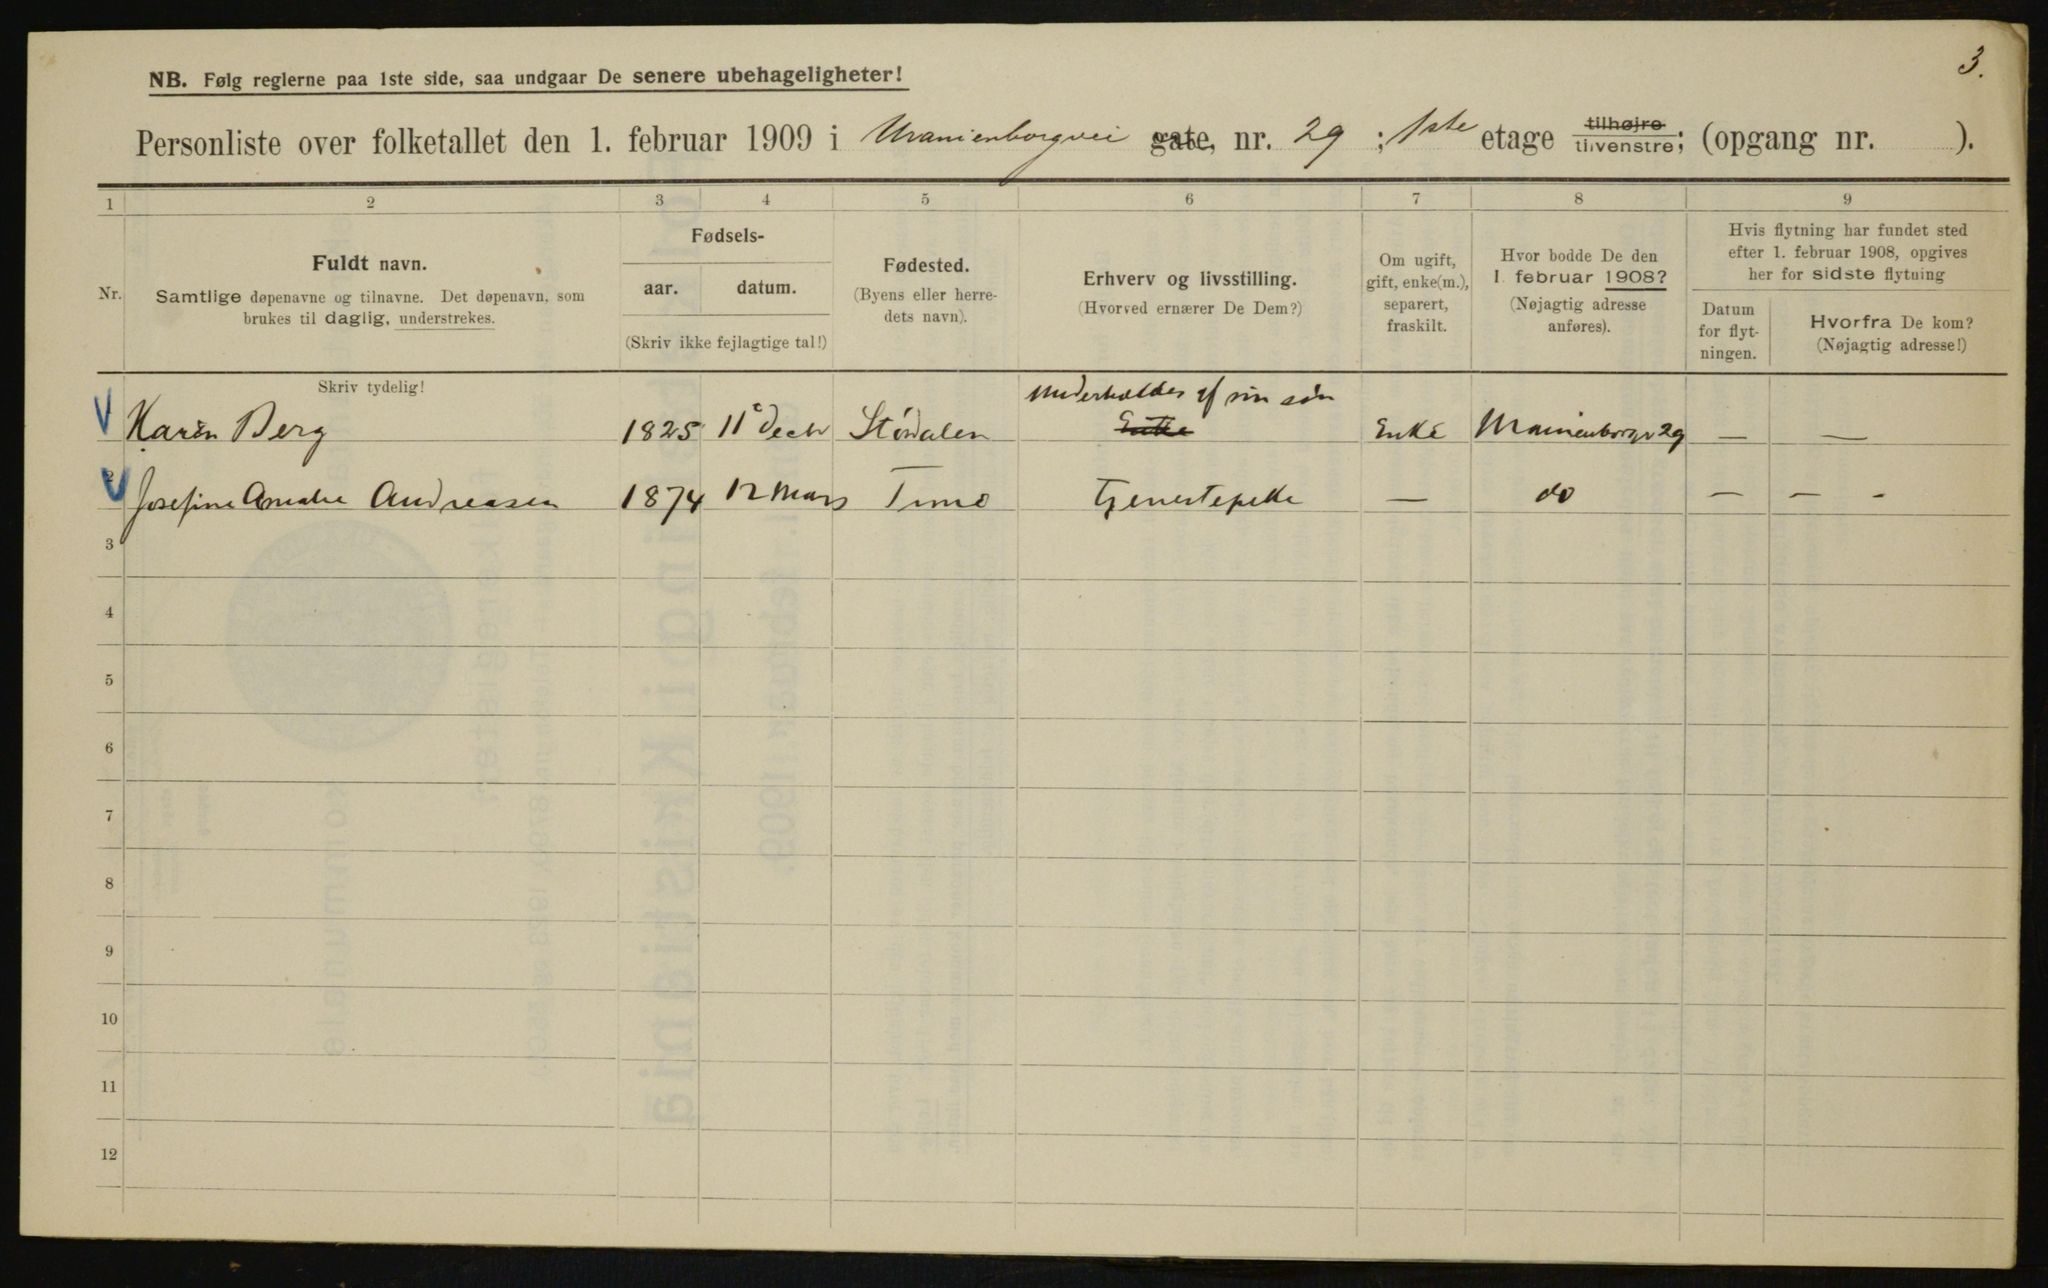 3.
NB. Følg reglerne paa 1ste side, saa undgaar De senere ubehageligheter!
Personliste over folketallet den 1. februar 1909 i Uranienborgvei gate, nr. 29 ; 1ste etage tilhøjre tilvenstre; (opgang nr. ).
1 2 3 4 5 6 7 8 9
Nr.
Fuldt navn.
Samtlige døpenavne og tilnavne. Det døpenavn, som
brukes til daglig, understrekes.
Skriv tydelig!
Fødsels-
aar. datum.
(Skriv ikke fejlagtige tal!)
Fødested.
(Byens eller herre-
dets navn).
Erhverv og livsstilling.
(Hvorved ernærer De Dem?)
Om ugift,
gift, enke(m.),
separert,
fraskilt.
Hvor bodde De den
1. februar 1908?
(Nøjagtig adresse
anføres).
Hvis flytning har fundet sted
efter 1. februar 1908, opgives
her for sidste flytning
Datum
for flyt-
ningen.
Hvorfra De kom?
(Nøjagtig adresse!)
Underholdes af sin søn
Karen Berg 1825 11 Decbr Enke Enke Uranienborgv 29 — —
2 Josefine Amalie Andreasen 1874 12 Mars — do — — -
3
4
5
6
7
8
9
10
11
12